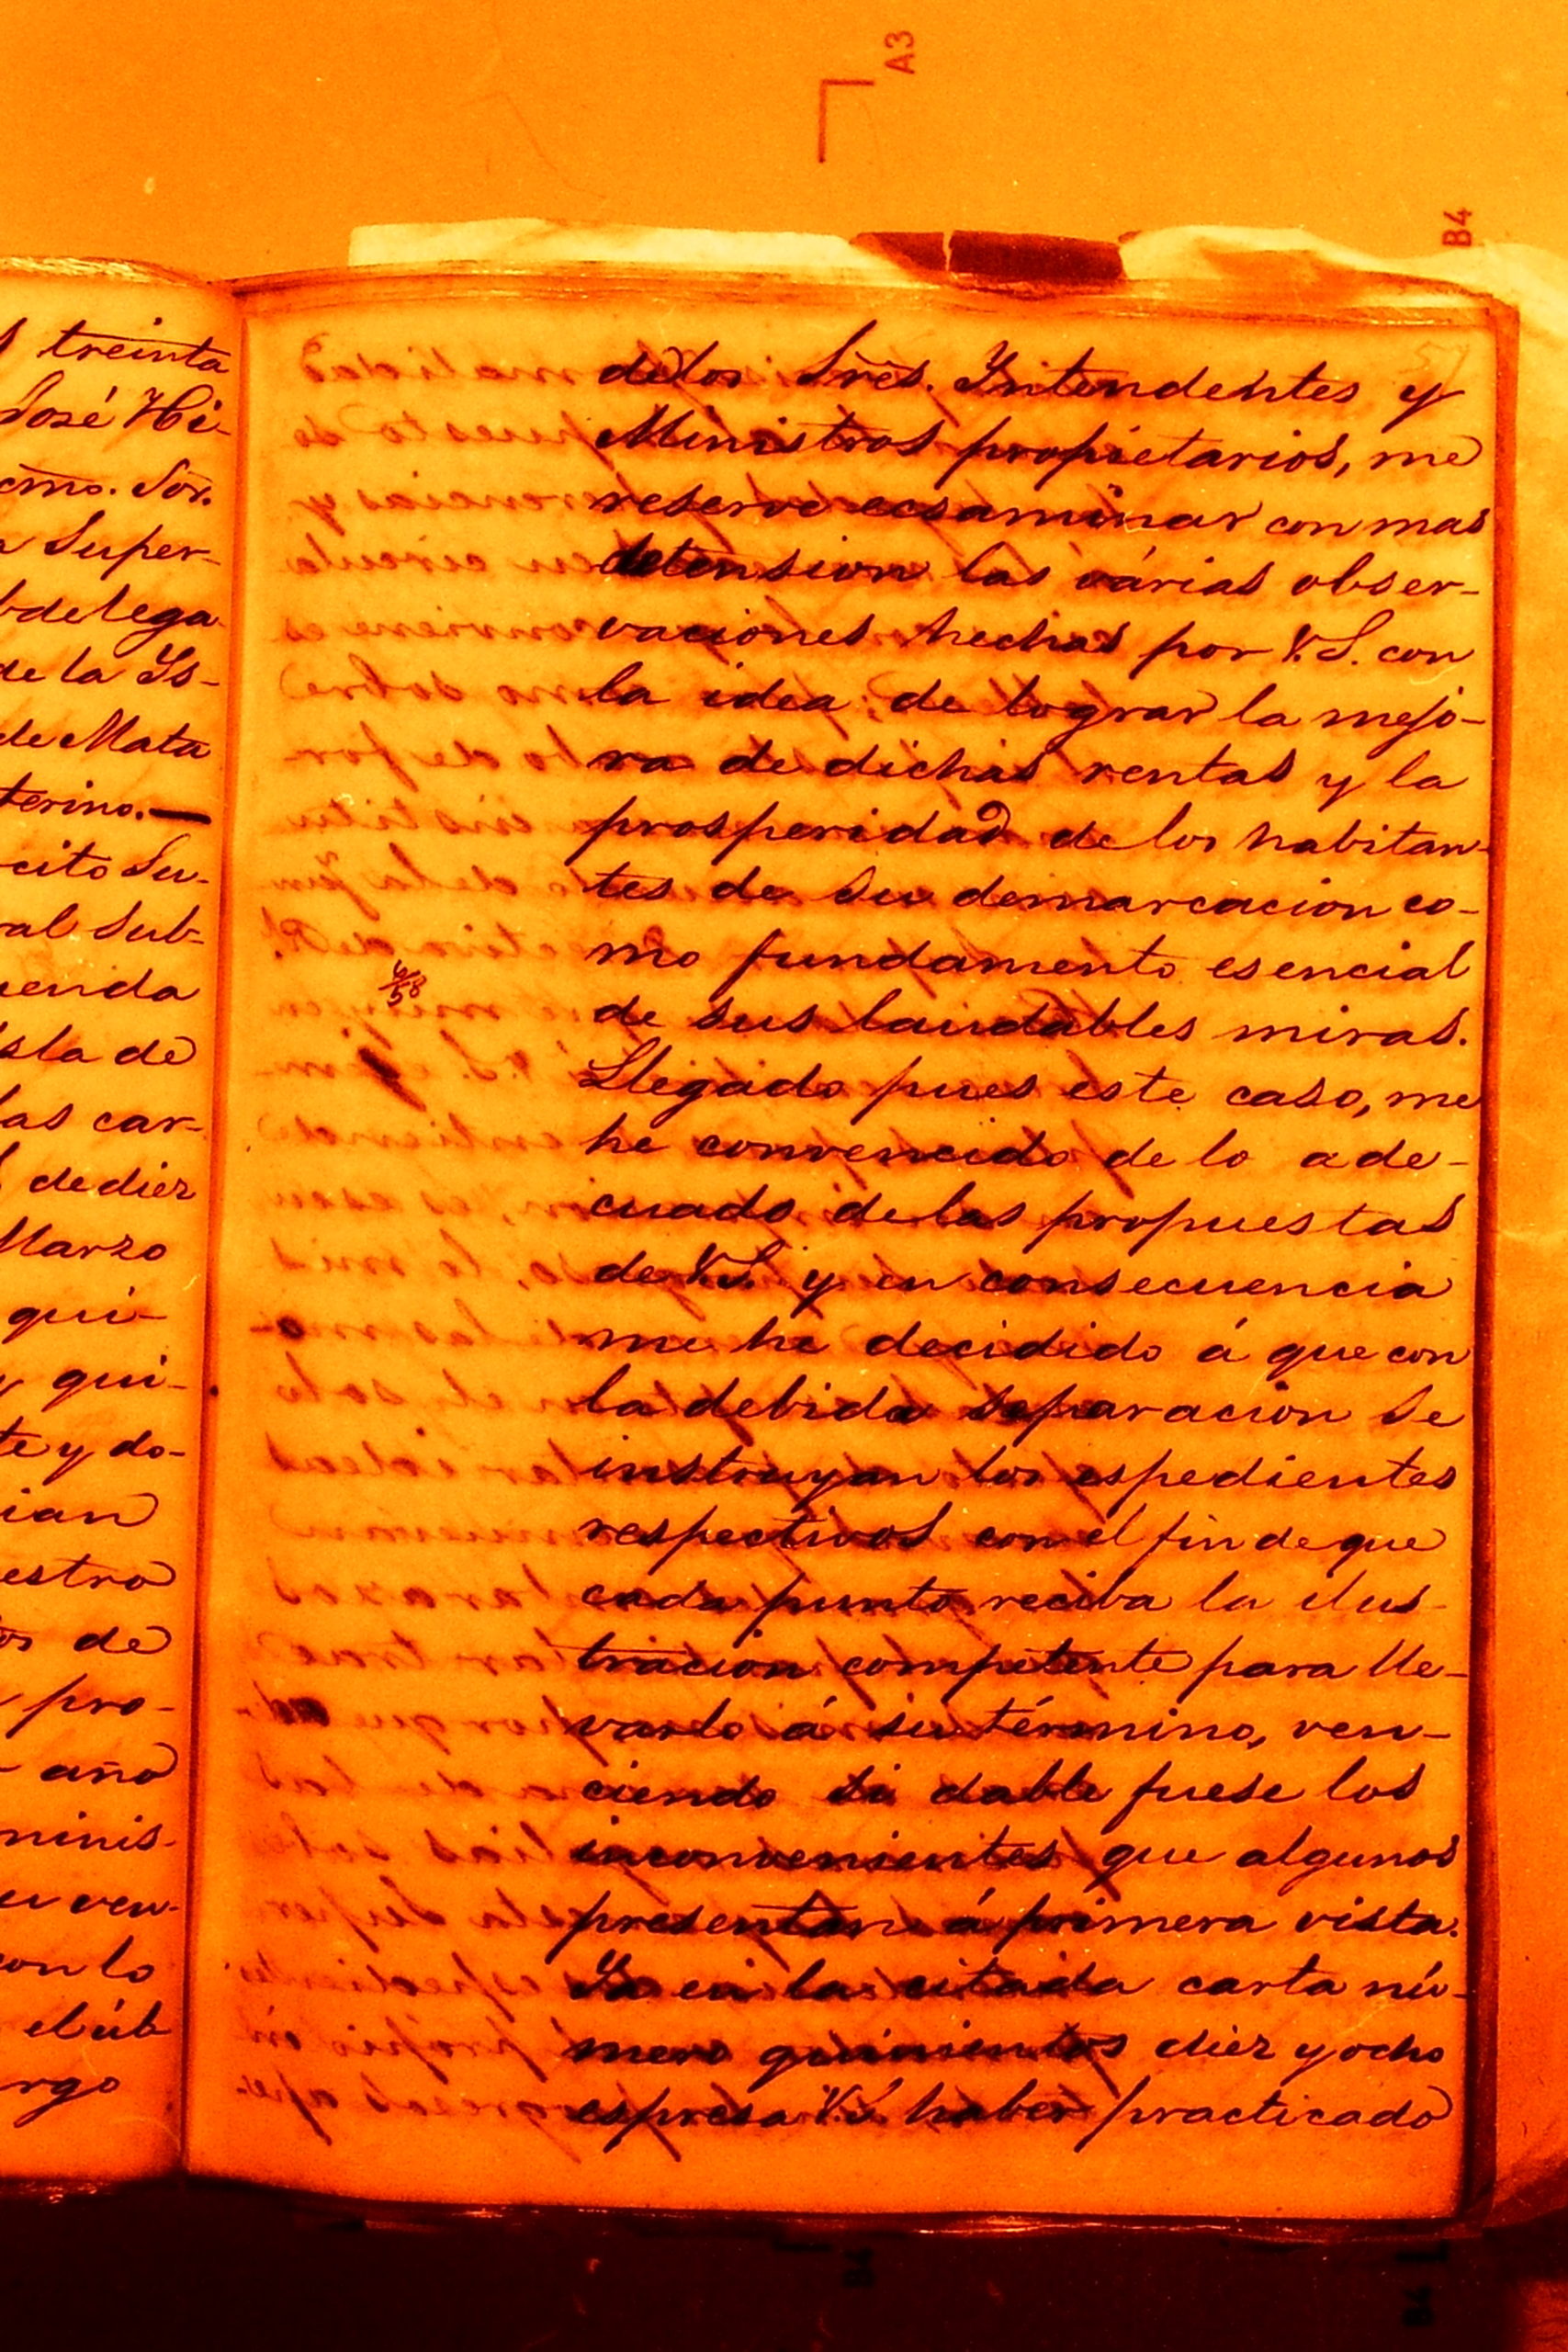 A3
B4
s treinta
José Hi-
cmo. Sor.
a Super-
bdelega
de la Ys-
de Mata
terino.—
cito Su-
al Sub-
ienda
isla de
las car-
de diez
Marzo
qui-
y qui-
te y do-
ian
estro
os de
pro-
año
minis-
u ven-
con lo
el úb
rgo
57
de los Sres. Yntendentes y
Ministros propietarios, me
reservé ecsaminar con mas
detension las várias obser-
vaciones hechas por V.S. con
la idea; de lograr la mejo-
ra de dichas rentas y la
prosperidad de los habitan-
tes de su demarcacion co-
mo fundamento esencial
de sus laudables miras.
Llegado pues este caso, me
he convencido de lo ade-
cuado de las propuestas
de V.S. y en consecuencia
me he decidido á que con
la debida separacion se
instruyan los espedientes
respectivos con el fin de que
cada punto reciba la ilus-
tracion competente para lle-
varlo á su término, ven-
ciendo si dable fuese los
inconvenientes que algunos
presentan á primera vista.
Ya en la citada carta nú-
mero quinientos diez y ocho
espresa V.S. haber practicado
B4
B4